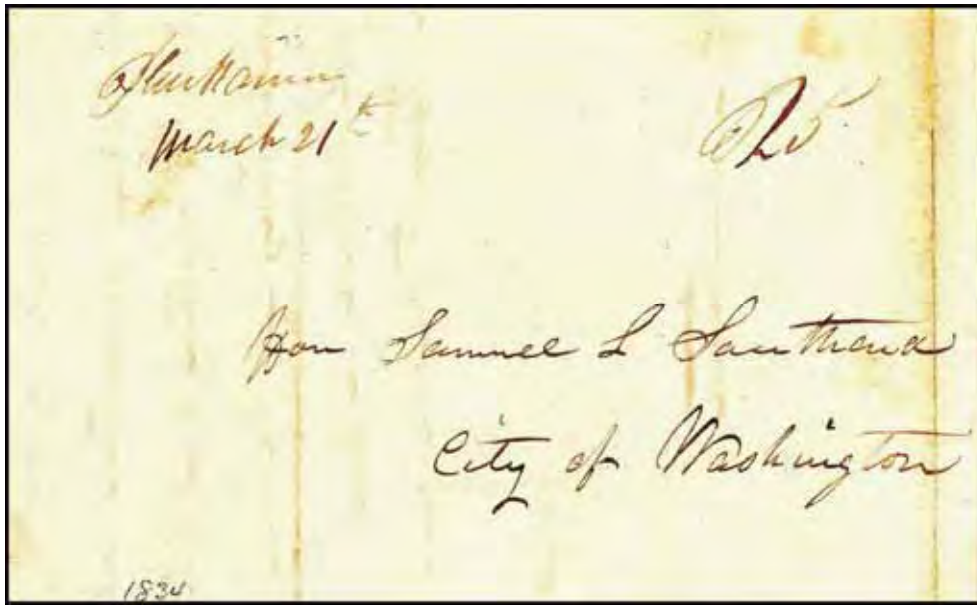 March 21th
25
Hon Samuel L Southard
City of Washington
1834